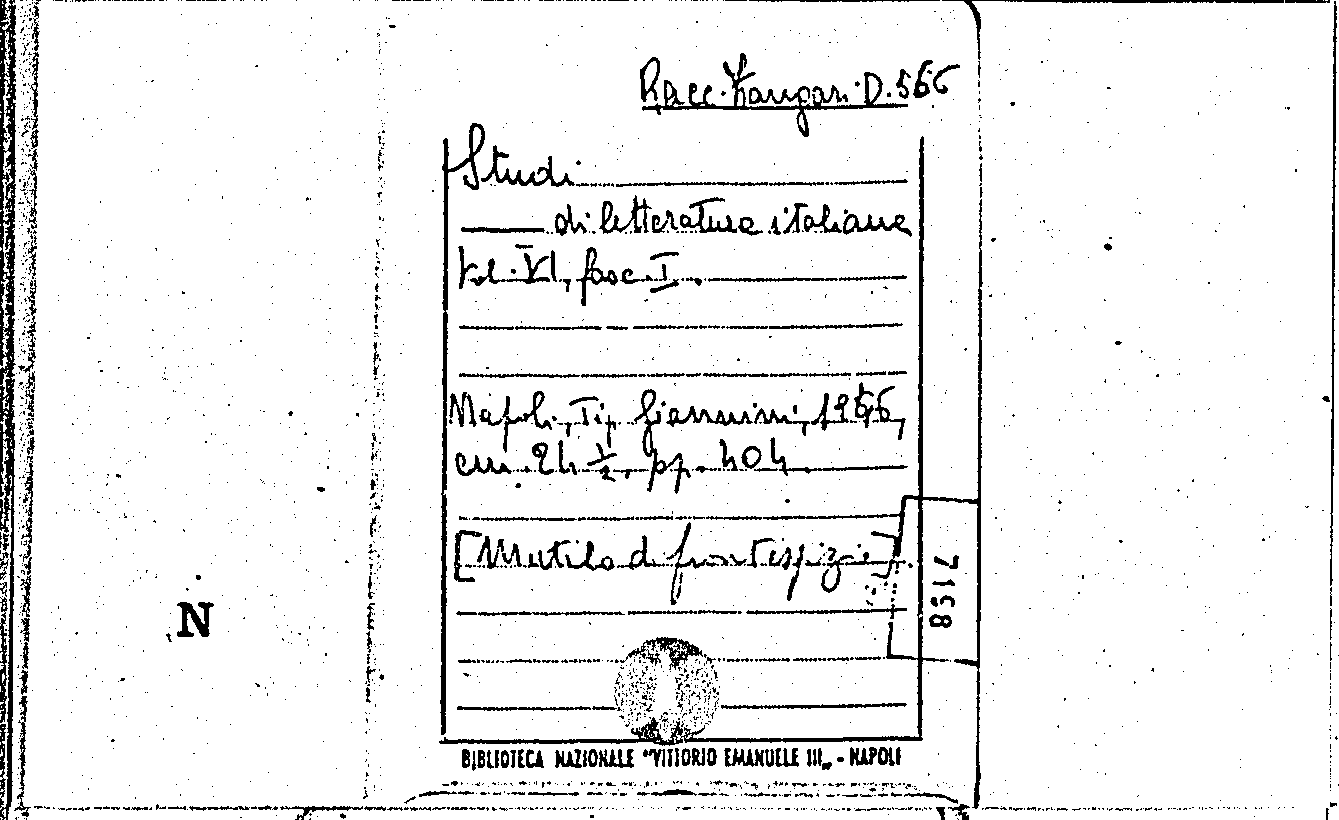 Racc. Zangari D. 566
Studi
di letteratura italiana
Vol. VI, fasc. I.
Napoli, Tip. Giannini, 1956,
cm. 24 ½, pp. 404.
[Mutilo di frontespizio].
7158
N
BIBLIOTECA NAZIONALE "VITTORIO EMANUELE III„ - NAPOLI